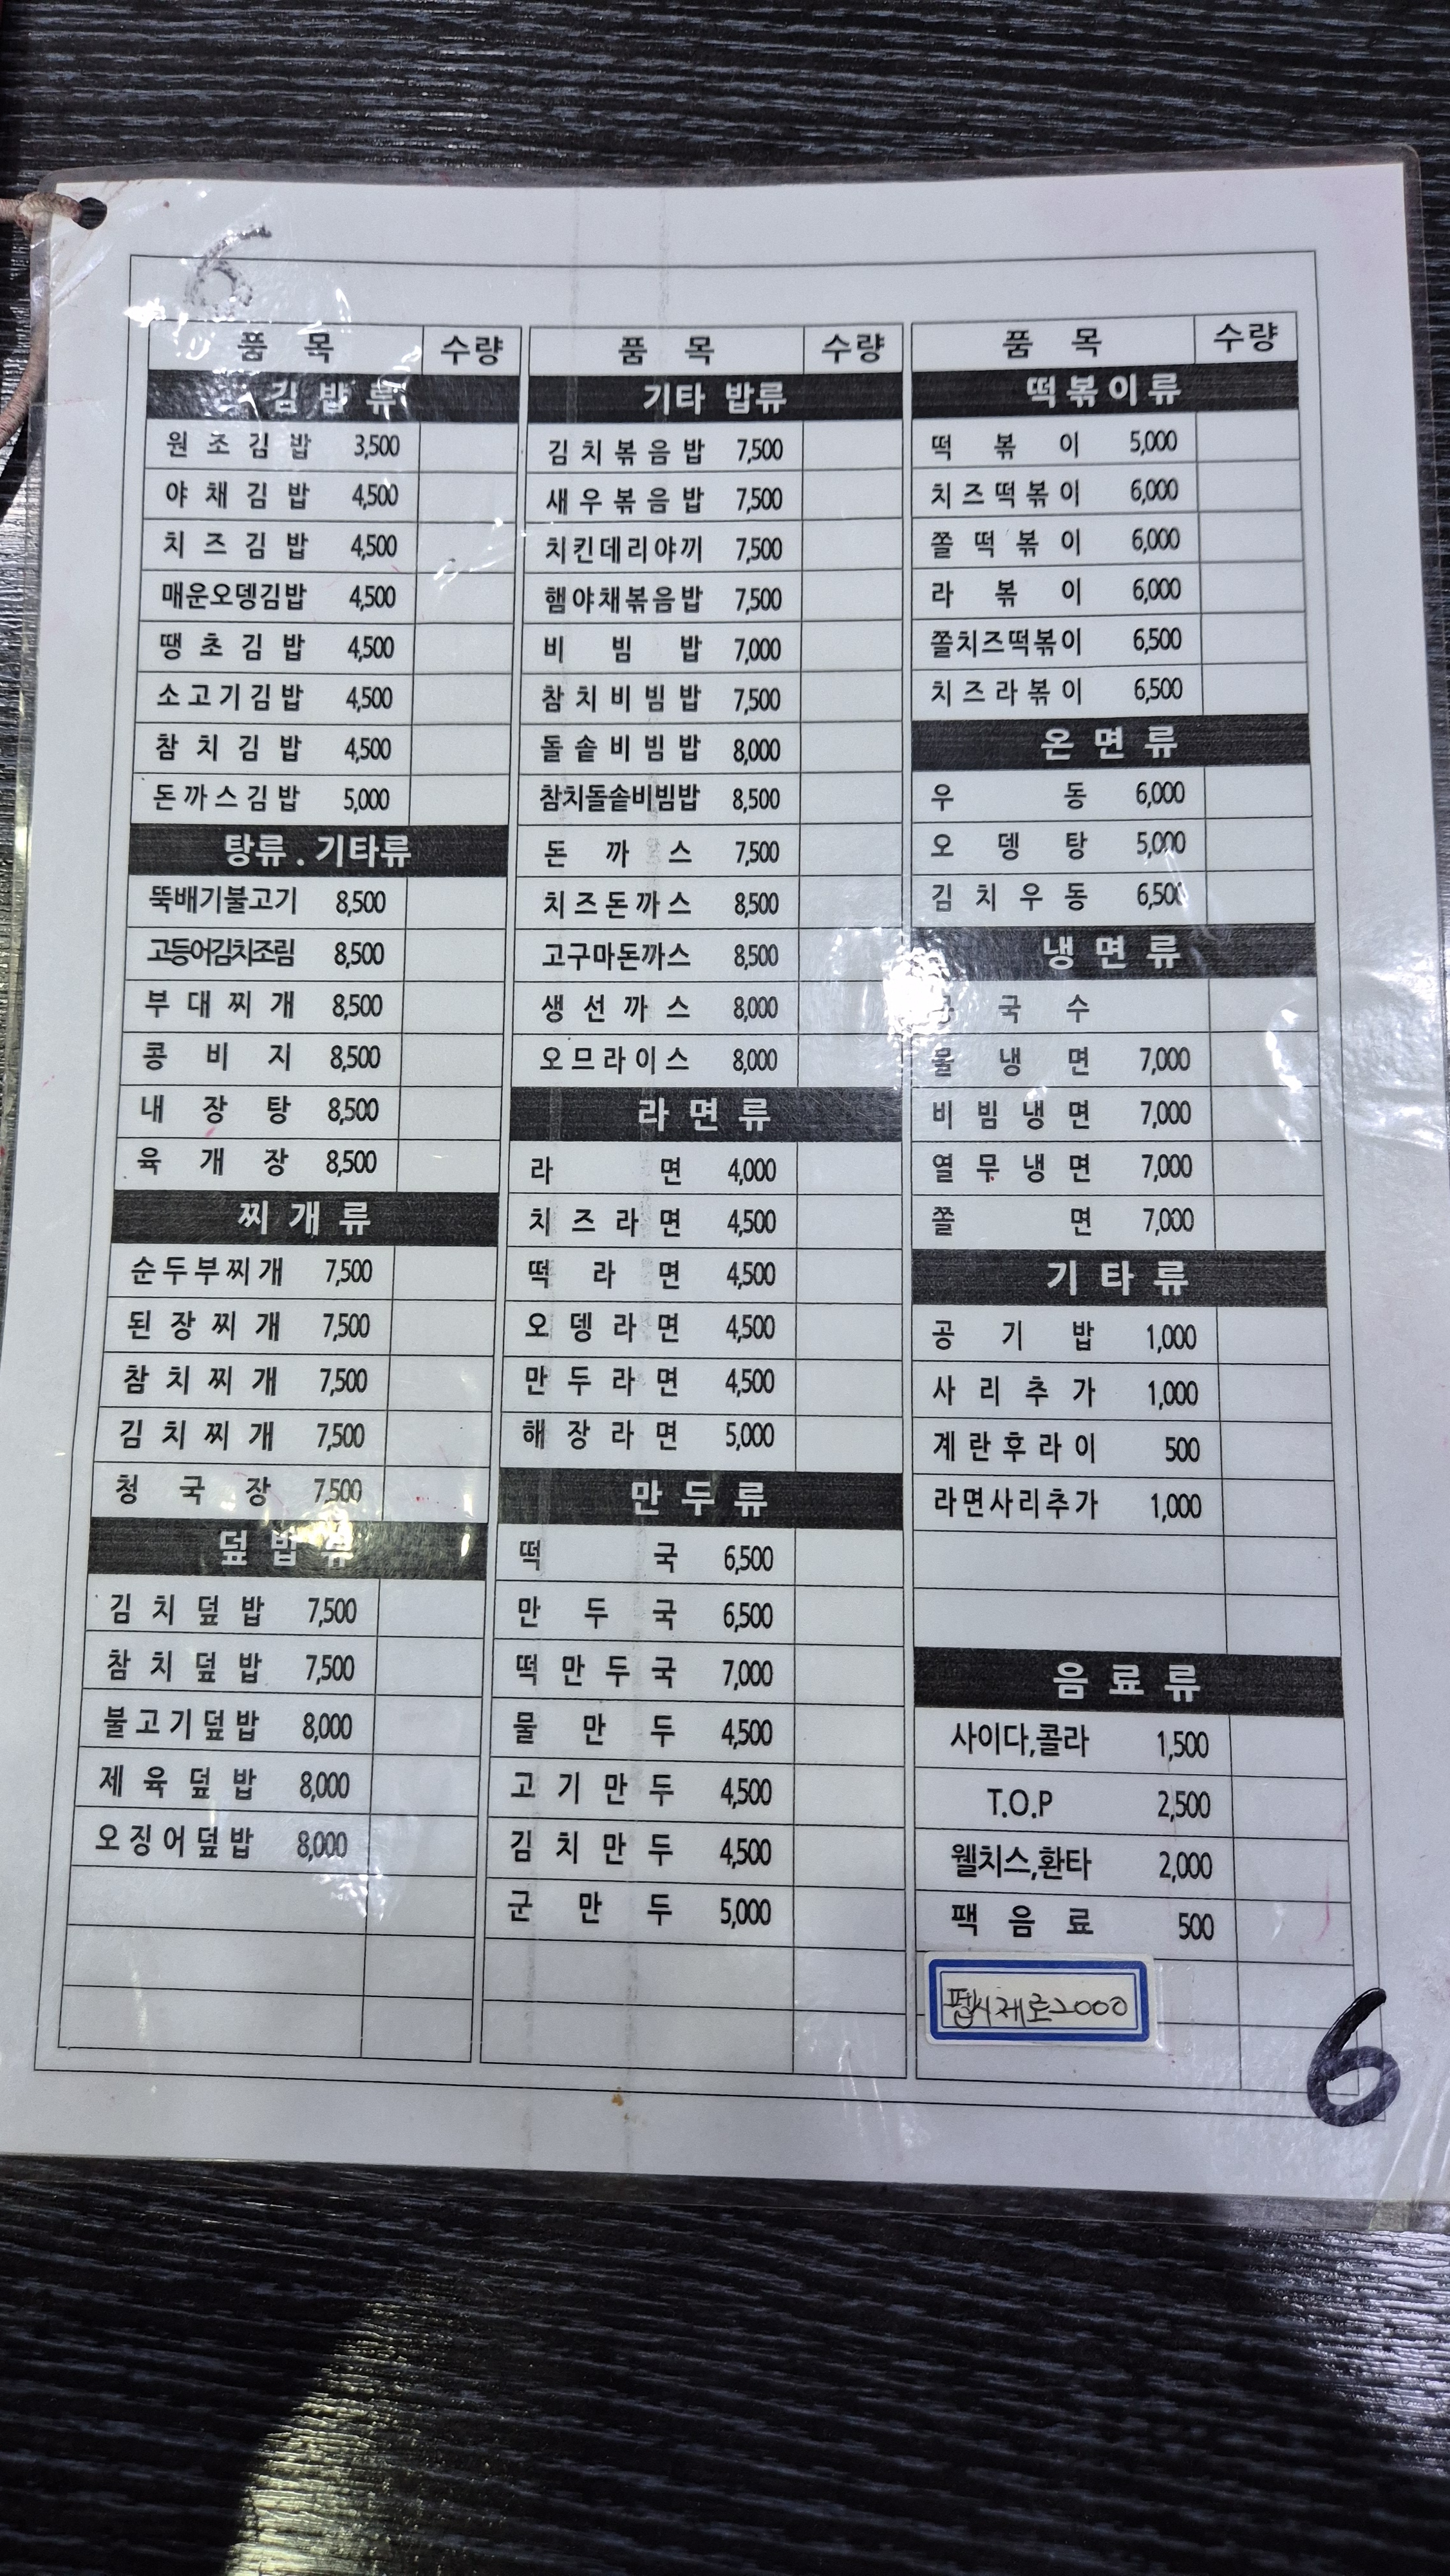 6
품 목 수량
김밥류
원조김밥 3,500
야채김밥 4,500
치즈김밥 4,500
매운오뎅김밥 4,500
땡초김밥 4,500
소고기김밥 4,500
참치김밥 4,500
돈까스김밥 5,000
탕류.기타류
뚝배기불고기 8,500
고등어김치조림 8,500
부대찌개 8,500
콩비지 8,500
내장탕 8,500
육개장 8,500
찌개류
순두부찌개 7,500
된장찌개 7,500
참치찌개 7,500
김치찌개 7,500
청국장 7,500
덮밥류
김치덮밥 7,500
참치덮밥 7,500
불고기덮밥 8,000
제육덮밥 8,000
오징어덮밥 8,000
품 목 수량
기타 밥류
김치볶음밥 7,500
새우볶음밥 7,500
치킨데리야끼 7,500
햄야채볶음밥 7,500
비빔밥 7,000
참치비빔밥 7,500
돌솥비빔밥 8,000
참치돌솥비빔밥 8,500
돈까스 7,500
치즈돈까스 8,500
고구마돈까스 8,500
생선까스 8,000
오므라이스 8,000
라면류
라면 4,000
치즈라면 4,500
떡라면 4,500
오뎅라면 4,500
만두라면 4,500
해장라면 5,000
만두류
떡국 6,500
만두국 6,500
떡만두국 7,000
물만두 4,500
고기만두 4,500
김치만두 4,500
군만두 5,000
품 목 수량
떡볶이류
떡볶이 5,000
치즈떡볶이 6,000
쫄떡볶이 6,000
라볶이 6,000
쫄치즈떡볶이 6,500
치즈라볶이 6,500
온면류
우동 6,000
오뎅탕 5,000
김치우동 6,500
냉면류
국수
물냉면 7,000
비빔냉면 7,000
열무냉면 7,000
쫄면 7,000
기타류
공기밥 1,000
사리추가 1,000
계란후라이 500
라면사리추가 1,000
음료류
사이다,콜라 1,500
T.O.P 2,500
웰치스,환타 2,000
팩음료 500
펩시제로2000
6